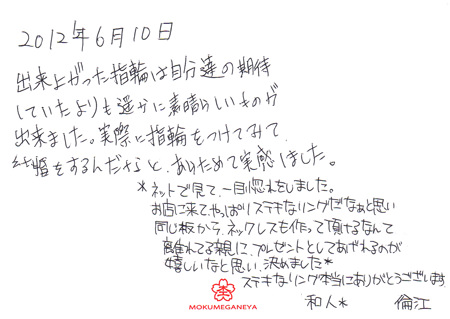 2012年6月10日
出来上がった指輪は自分達の期待
していたよりも遥かに素晴らしいものが
出来ました。実際に指輪をつけてみて、
結婚をするんだなぁと、あらためて実感しました。
*ネットで見て、一目惚れをしました。
お店に来て、やっぱりステキなリングだなぁと思い
同じ板から、ネックレスも作って頂けるなんて
離れてる親に、プレゼントとしてあげれるのが
嬉しいなと思い、決めました*
ステキなリング本当にありがとうございます
MOKUMEGANEYA
和人* 倫江